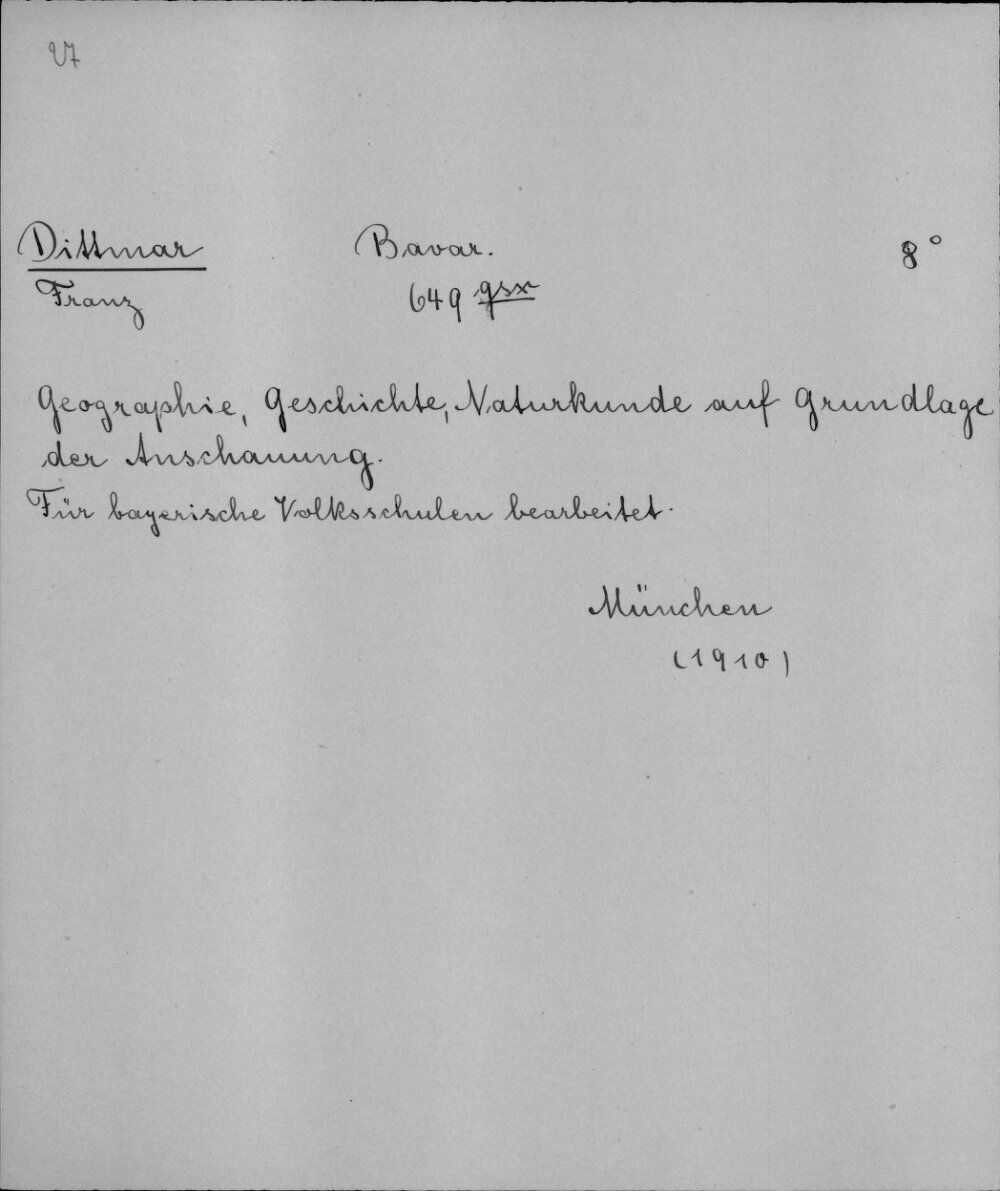 Dittmar Bavar. 8°
Franz 649 gsx
Geographie, Geschichte, Naturkunde auf Grundlage
der Anschauung.
Für bayerische Volksschulen bearbeitet.
München
(1910)